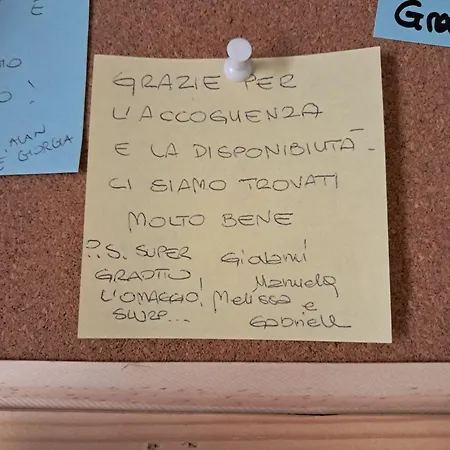 O !
ALAN
E GIORGIA
Gra
GRAZIE PER
L'ACCOGLIENZA
E LA DISPONIBILITÀ
CI SIAMO TROVATI
MOLTO BENE
P.S. SUPER
GRADITO
L'OMAGGIO!
SLURP...
Giovanni
Manuela
Melissa e
Gabriele